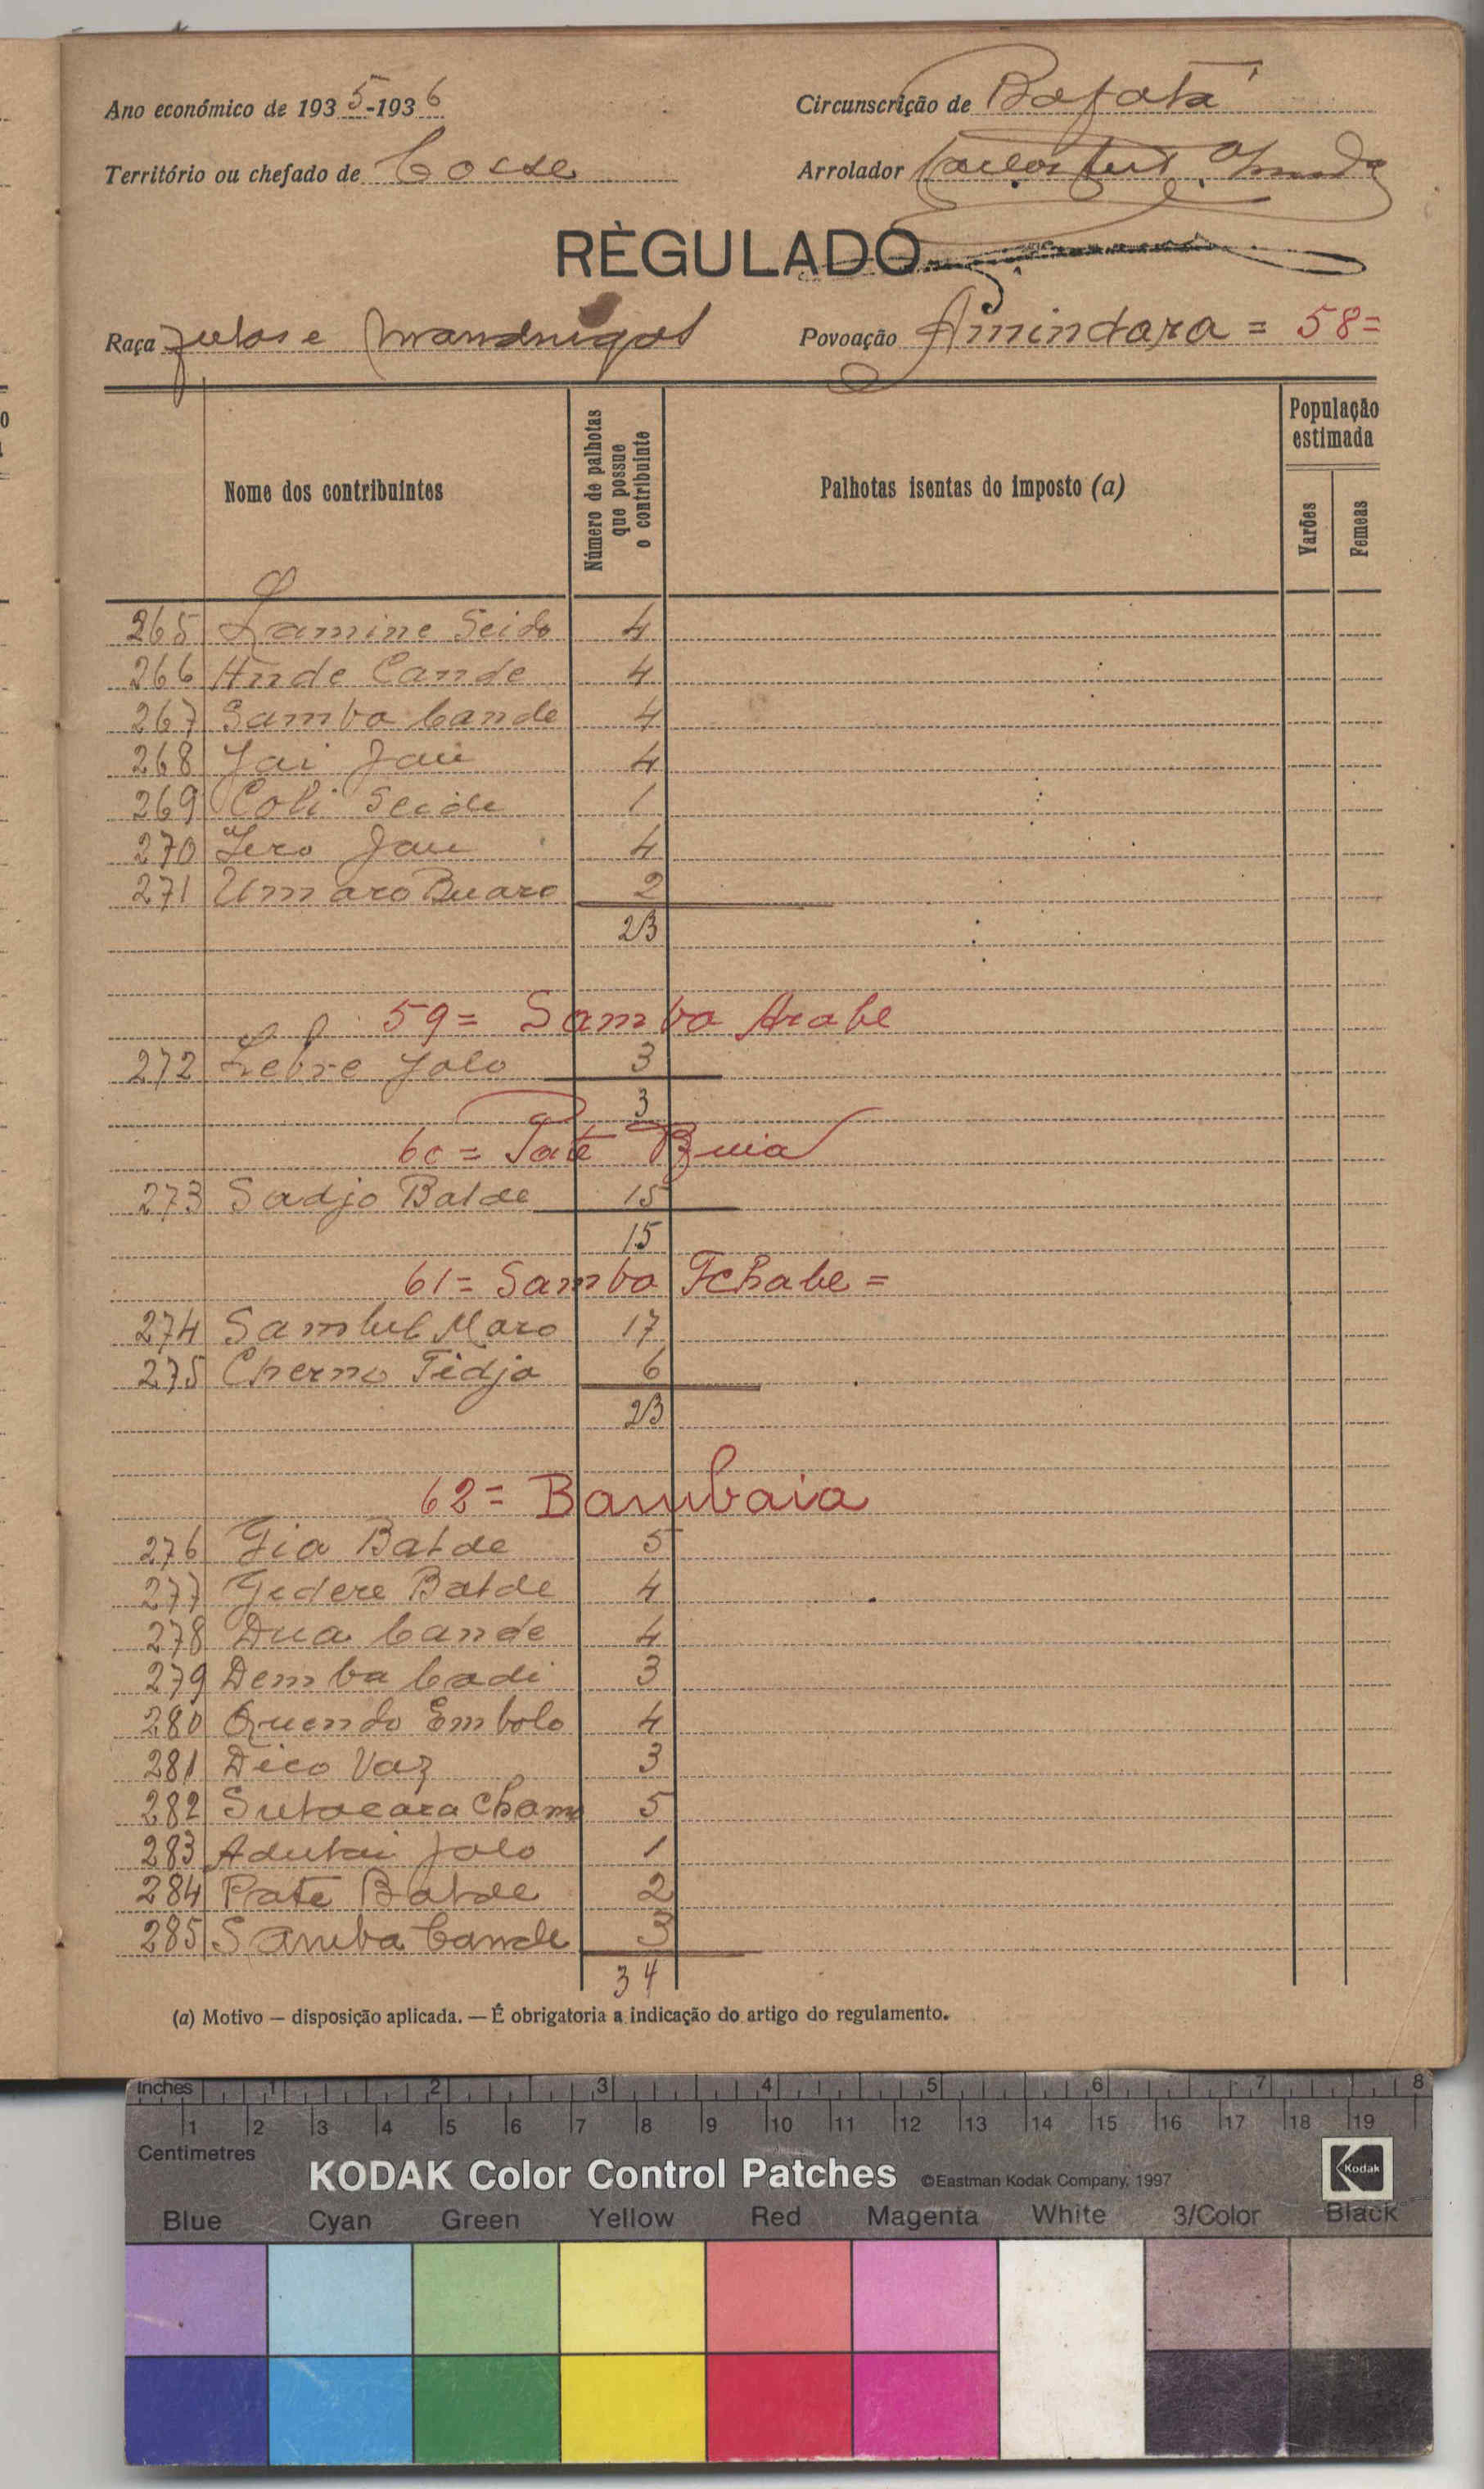 Ano económico de 1935-1936
Circunscrição de Bafatá
Território ou chefado de Cosse
Arrolador Carlos
RÈGULADO
Raça fulas e mandingas
Povoação Amindara = 58=
Nome dos contribuintes
Número de palhotas que possue o contribuinte
Palhotas isentas do imposto (a)
População estimada
Varões
Femeas
265 Lamine Seido 4
266 Ande Cande 4
267 Samba Cande 4
268 Jai Jau 4
269 Coli Seide 1
270 Jero Jau 4
271 Umaro Buaro 2
23
59= Samba Arabe
272 Lebre Jolo 3
3
60= Pate Buia
273 Sadjo Balde 15
15
61= Samba Tchabe=
274 Sambel Maro 17
275 Cherno Tidja 6
23
62= Bambaia
276 Gia Balde 5
277 Gedere Balde 4
278 Dua Cande 4
279 Demba Cadi 3
280 Quendo Embolo 4
281 Dico Vaz 3
282 Sutocara Cham 5
283 Adulai Jolo 1
284 Pate Balde 2
285 Samba Cande 3
34
(a) Motivo — disposição aplicada. — É obrigatoria a indicação do artigo do regulamento.
Inches 1 2 3 4 5 6 7 8
1 2 3 4 5 6 7 8 9 10 11 12 13 14 15 16 17 18 19
Centimetres
KODAK Color Control Patches ©Eastman Kodak Company, 1997 Kodak
Blue Cyan Green Yellow Red Magenta White 3/Color Black